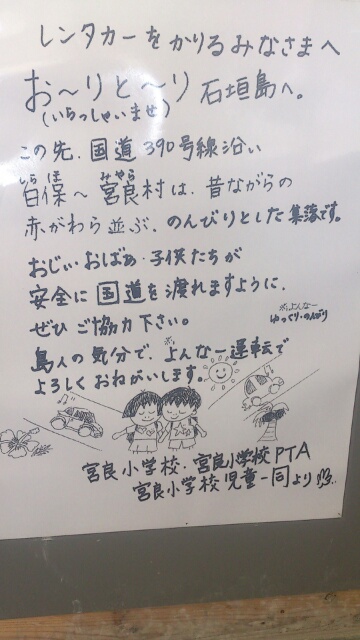 レンタカーをかりるみなさまへ
お〜りと〜り 石垣島へ。
(いらっしゃいませ)
この先、国道390号線沿い
しらほ みやら
白保〜宮良村は、昔ながらの
赤がわら並ぶ、のんびりとした集落です。
おじぃ・おばぁ・子供たちが
安全に国道を渡れますように、
ぜひご協力下さい。
※よんなー
ゆっくり・のんびり
島人の気分で、※よんなー運転で
よろしくおねがいします。
宮良小学校・宮良小学校PTA
宮良小学校児童一同より